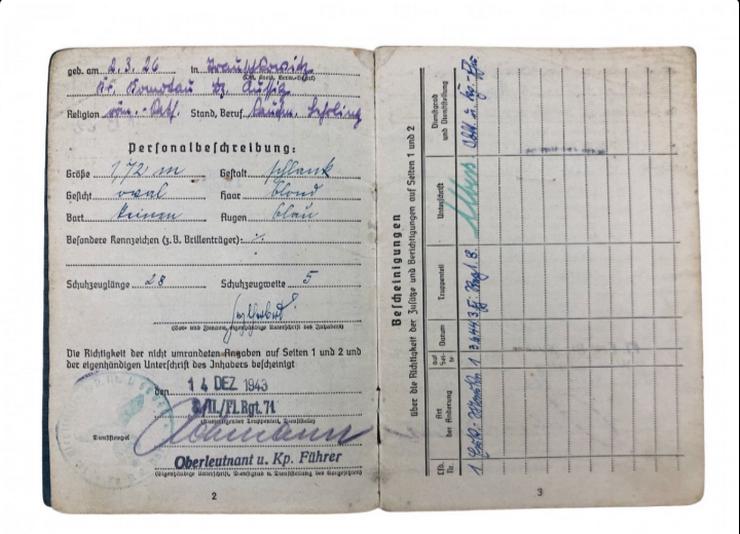 geb. am 2.3.26 in
(Ort, Kreis, Verw.-Bezirk)
Kr. Komotau Bz. Aussig
Religion röm.-kath. Stand, Beruf Kaufm. Lehrling
Personalbeschreibung:
Größe 1,72 m Gestalt schlank
Gesicht oval Haar blond
Bart keinen Augen blau
Besondere Kennzeichen (z. B. Brillenträger): ./.
Schuhzeuglänge 28 Schuhzeugweite 5
(Vor- und Zuname, eigenhändige Unterschrift des Inhabers)
Die Richtigkeit der nicht umrandeten Angaben auf Seiten 1 und 2 und
der eigenhändigen Unterschrift des Inhabers bescheinigt
den 14 DEZ 1943
3./III./Fl.Rgt. 71
(Ausfertigender Truppenteil, Dienststelle)
Dienststempel
Oberleutnant u. Kp. Führer
(Eigenhändige Unterschrift, Dienstgrad u. Dienststellung des Vorgesetzten)
2
Bescheinigungen
über die Richtigkeit der Zusätze und Berichtigungen auf Seiten 1 und 2
Lfd. Nr.
Art der Änderung
auf Seite
Datum
Truppenteil
Unterschrift
Dienstgrad und Dienststellung
1
1
3